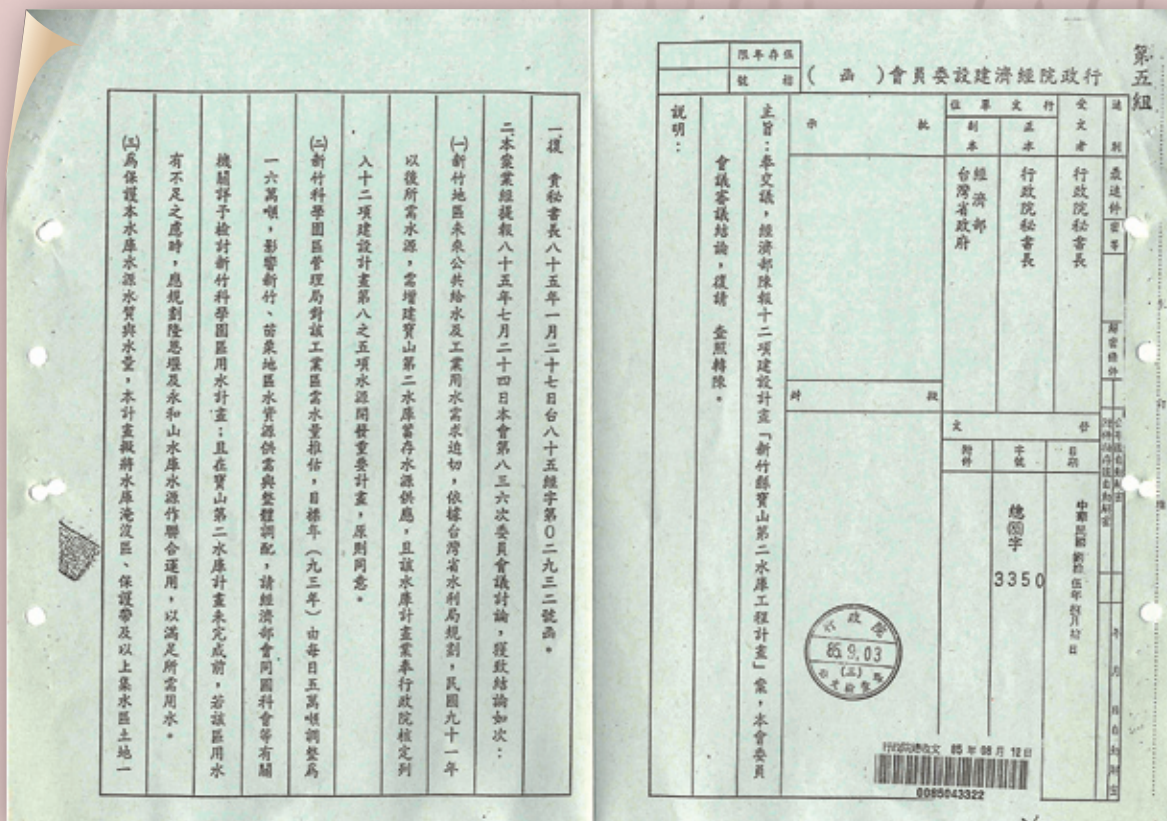 第五組
保存年限
檔號
行政院經濟建設委員會(函)
速別
最速件
密等
解密條件
公布後自動解密
附件抽存後自動解密
年 月 日自動解密
受文者
行政院秘書長
行文單位
正本
行政院秘書長
副本
經濟部
台灣省政府
發文
日期
中華民國 捌拾伍年 捌月拾 日
字號
總(85)字
3350
附件
批示
擬辦
行政院
85.9.03
(三)
行政院總收文 85年08月12日
0085043322
主旨:奉交議,經濟部陳報十二項建設計畫「新竹縣寶山第二水庫工程計畫」案,本會委員
會議審議結論,復請 查照轉陳。
說明:
一、復 貴秘書長八十五年一月二十七日台八十五經字第0二九三二號函。
二、本案業經提報八十五年七月二十四日本會第八三六次委員會議討論,獲致結論如次:
㈠新竹地區未來公共給水及工業用水需求迫切,依據台灣省水利局規劃,民國九十一年
以後所需水源,需增建寶山第二水庫蓄存水源供應,且該水庫計畫業奉行政院核定列
入十二項建設計畫第八之五項水源開發重要計畫,原則同意。
㈡新竹科學園區管理局對該工業區需水量推估,目標年(九三年)由每日五萬噸調整為
一六萬噸,影響新竹、苗栗地區水資源供需與整體調配,請經濟部會同國科會等有關
機關詳予檢討新竹科學園區用水計畫;且在寶山第二水庫計畫未完成前,若該區用水
有不足之慮時,應規劃隆恩堰及永和山水庫水源作聯合運用,以滿足所需用水。
㈢為保護本水庫水源水質與水量,本計畫擬將水庫淹沒區、保護帶及以上集水區土地一